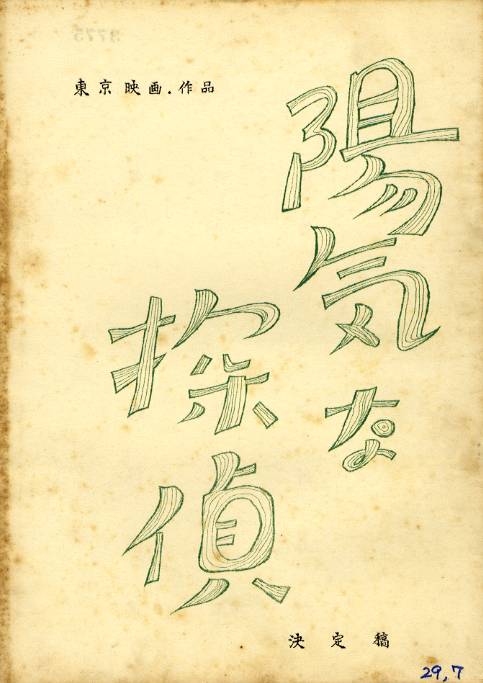 東京映画.作品
陽気な
探偵
決定稿
29,7